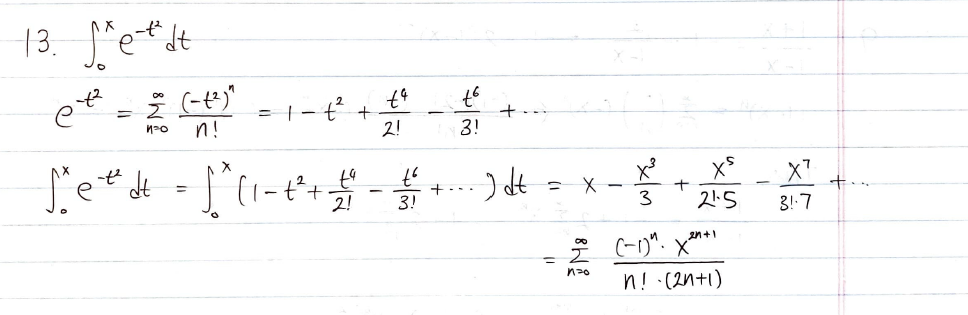 13. ∫₀ˣ e^(-t²) dt
e^(-t²) = Σ_(n=0)^∞ (-t²)ⁿ/n! = 1 - t² + t⁴/2! - t⁶/3! + ...
∫₀ˣ e^(-t²) dt = ∫₀ˣ (1 - t² + t⁴/2! - t⁶/3! + ...) dt = x - x³/3 + x⁵/(2!·5) - x⁷/(3!·7) + ...
= Σ_(n=0)^∞ ((-1)ⁿ · x^(2n+1))/(n! · (2n+1))